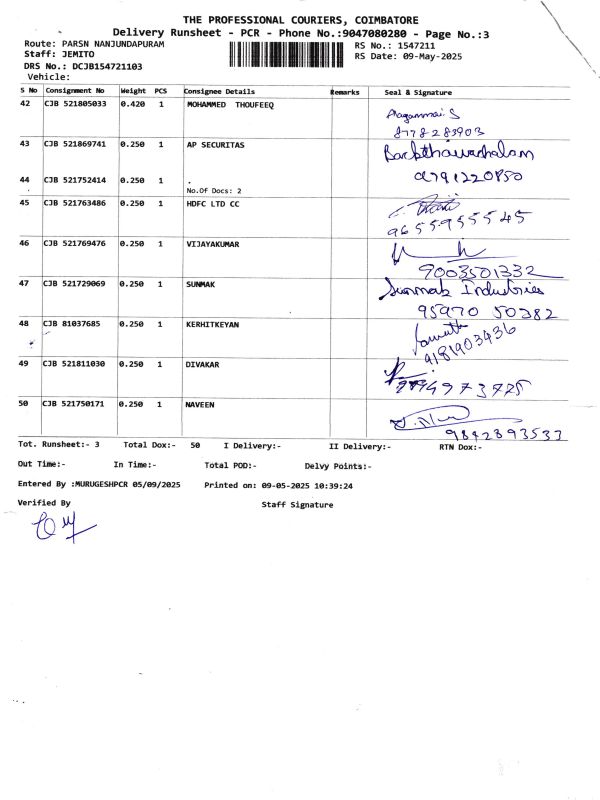 THE PROFESSIONAL COURIERS, COIMBATORE
Delivery Runsheet - PCR - Phone No.:9047080280 - Page No.:3
Route: PARSN NANJUNDAPURAM
RS No.: 1547211
Staff: JEMITO
RS Date: 09-May-2025
DRS No.: DCJB154721103
Vehicle:
S No Consignment No Weight PCS Consignee Details Remarks Seal & Signature
42 CJB 521805033 0.420 1 MOHAMMED THOUFEEQ
Alagammai.S
8778283903
43 CJB 521869741 0.250 1 AP SECURITAS
44 CJB 521752414 0.250 1 . 9791220850
No.Of Docs: 2
45 CJB 521763486 0.250 1 HDFC LTD CC
9655955545
46 CJB 521769476 0.250 1 VIJAYAKUMAR
9003501332
47 CJB 521729069 0.250 1 SUNMAK Sunmak Industries
95970 50382
48 CJB 81037685 0.250 1 KERHITKEYAN
9181903436
49 CJB 521811030 0.250 1 DIVAKAR
50 CJB 521750171 0.250 1 NAVEEN
9842893533
Tot. Runsheet:- 3 Total Dox:- 50 I Delivery:- II Delivery:- RTN Dox:-
Out Time:- In Time:- Total POD:- Delvy Points:-
Entered By :MURUGESHPCR 05/09/2025 Printed on: 09-05-2025 10:39:24
Verified By Staff Signature